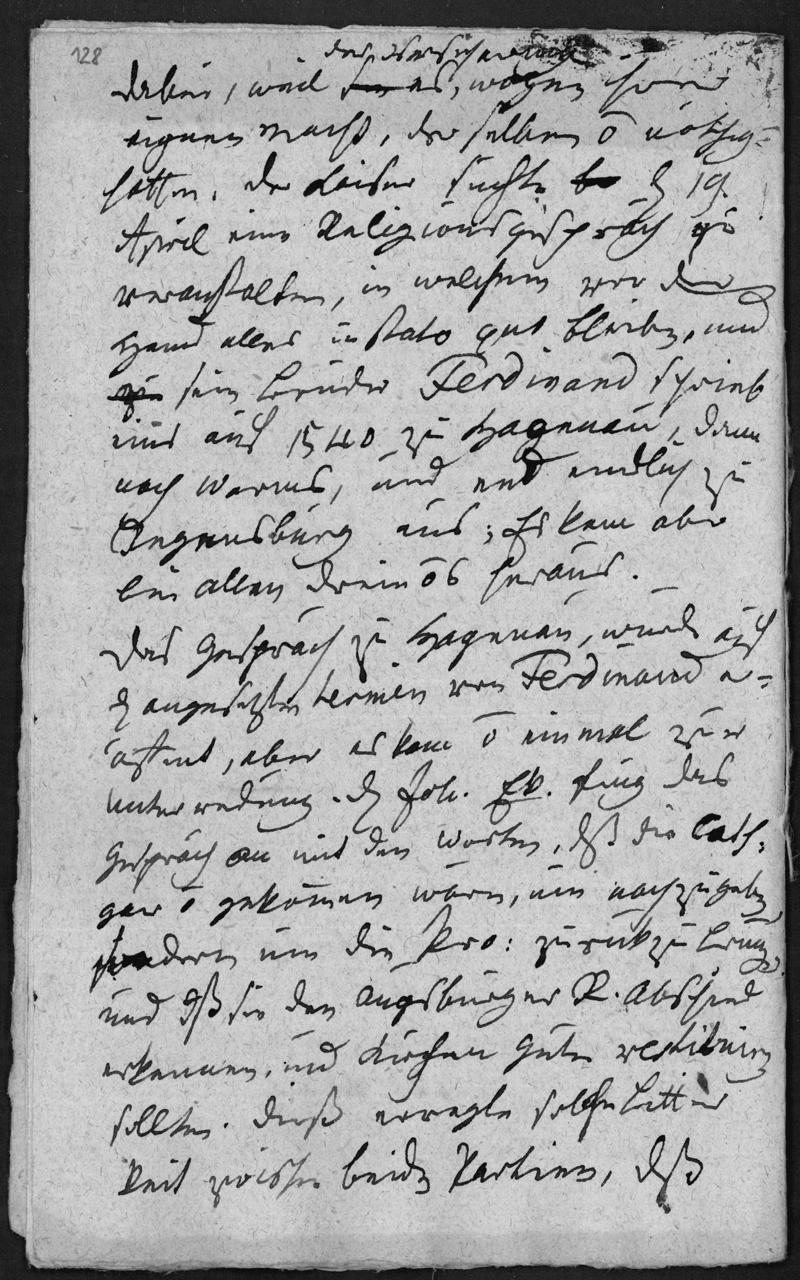 128
der Versicherung
dabei, weil sie es, wegen ihrer
eignen Macht, derselben ō nöthig=
hatten. Der Kaiser suchte d 19.
April eine Religionsgespräch zu
veranstalten, in welchem vor der
Hand alles in statu quo bleibe, und
sein Bruder Ferdinand schrieb
eins auf 1540 zu Hagenau, dann
nach Worms, und endlich zu
Regensburg aus; Es kam aber
bei allen dreien ōs heraus.
Das Gespräch zu Hagenau, wurde auf
d angesetzten Termin von Ferdinand er=
öffnet, aber es kam ō einmal zur
Unterredung. D Joh. Ek. fing das
Gespräch an mit den Worten, dß die Cath.
gar ō gekommen wären, um nachzugeben
sondern um die Pro: zurükzubringen
und dß sie den Augsburger R. Abschied
erkennen, und Kirchen Güter restituiren
sollten. Dieß erregte solche Bitter
keit zwischen beiden Partien, dß